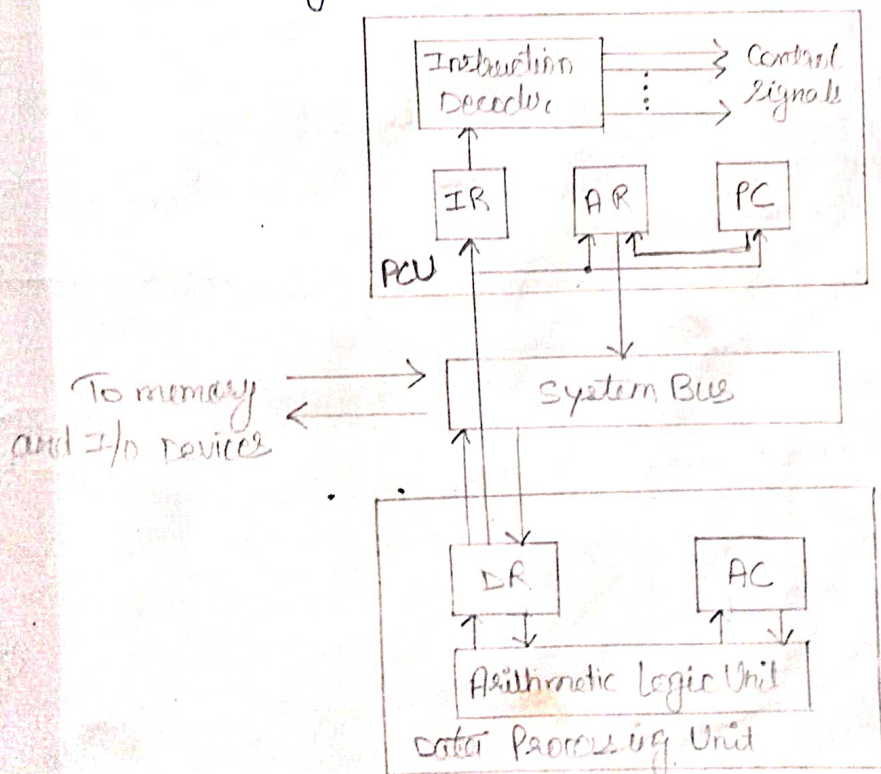 Instruction
Decoder
Control
signals
IR
AR
PC
PCU
System Bus
To memory
and I/O Devices
DR
AC
Arithmetic Logic Unit
Data Processing Unit